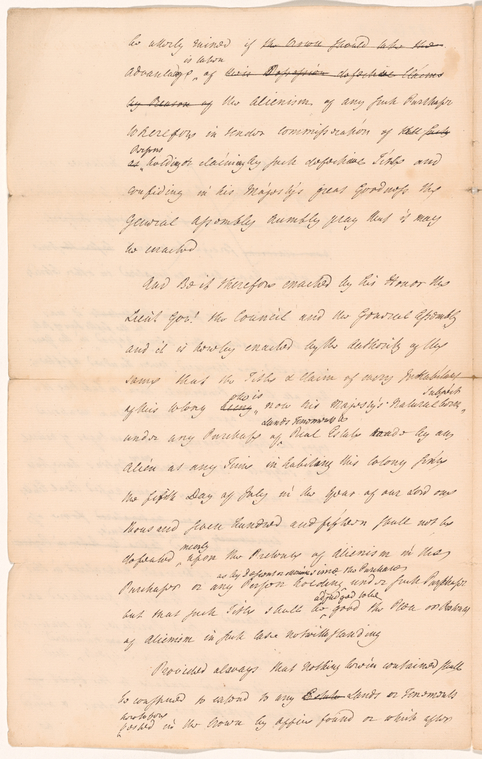 be utterly ruined if the Crown should take the
is taken
advantage, of their Possession defective Claims
by Reason of the Alienism of any such Purchaser
Wherefore in tender commiseration of all such
Persons
as holding or claiming by such defective Titles and
confiding in his Majesty's great Goodness the
General Assembly humbly pray that it may
be enacted
And Be it therefore enacted by his Honor the
Lieut Govr. the Council and the General Assembly
and it is hereby enacted by the Authority of the
same that the Title & Claim of every Inhabitant
who is Subject
of this Colony now his Majesty's Natural born
Lands Tenements or
under any Purchase of Real Estate made by any
Alien at any Time inhabiting this Colony since
the fifth Day of July in the Year of our Lord one
thousand seven Hundred and fifteen shall not be
merely
defeated upon the Pretence of Alienism in the
as by Descent or since the Purchase
Purchaser or any Person holding under such Purchaser
adjudged to be
but that such Titles shall be good the Plea or
of Alienism in such Case notwithstanding
Provided always that Nothing herein contained shall
be construed to extend to any Estate Lands or Tenements
heretofore
seized in the Crown by Office found or which after